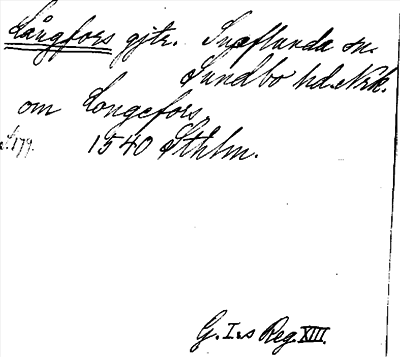 Långfors gjtr. Snaflunda sn.
Sundbo hd. Nrk.
om Longefors,
S. 179. 1540 Sthlm.
G. I:s Reg. XIII.